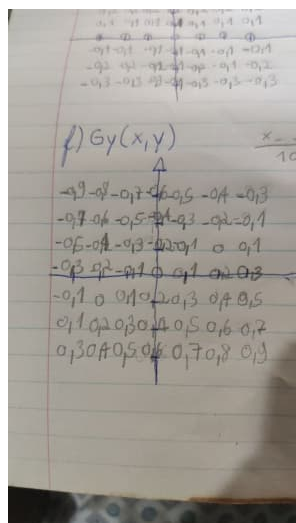 -0,1 -0,1 -0,1 -0,1 -0,1 -0,1 -0,1
-0,2 -0,2 -0,2 -0,2 -0,2 -0,2
-0,3 -0,3 -0,3 -0,3 -0,3 -0,3 -0,3
f) Gy(x,y)
x -
10
-0,9 -0,8 -0,7 -0,6 -0,5 -0,4 -0,3
-0,7 -0,6 -0,5 -0,4 -0,3 -0,2 -0,1
-0,5 -0,4 -0,3 -0,2 -0,1 0 0,1
-0,3 -0,2 -0,1 0 0,1 0,2 0,3
-0,1 0 0,1 0,2 0,3 0,4 0,5
0,1 0,2 0,3 0,4 0,5 0,6 0,7
0,3 0,4 0,5 0,6 0,7 0,8 0,9